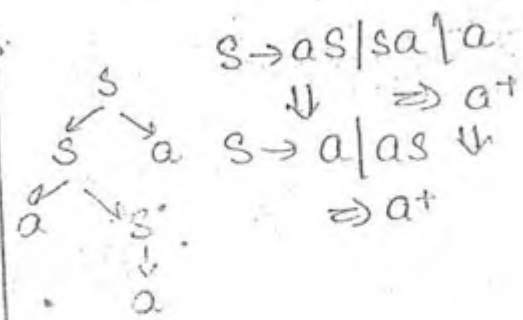 S→aS|Sa|a
⇓ ⇒ a⁺
S→a|aS ⇓
⇒ a⁺
S
S a
a S
a